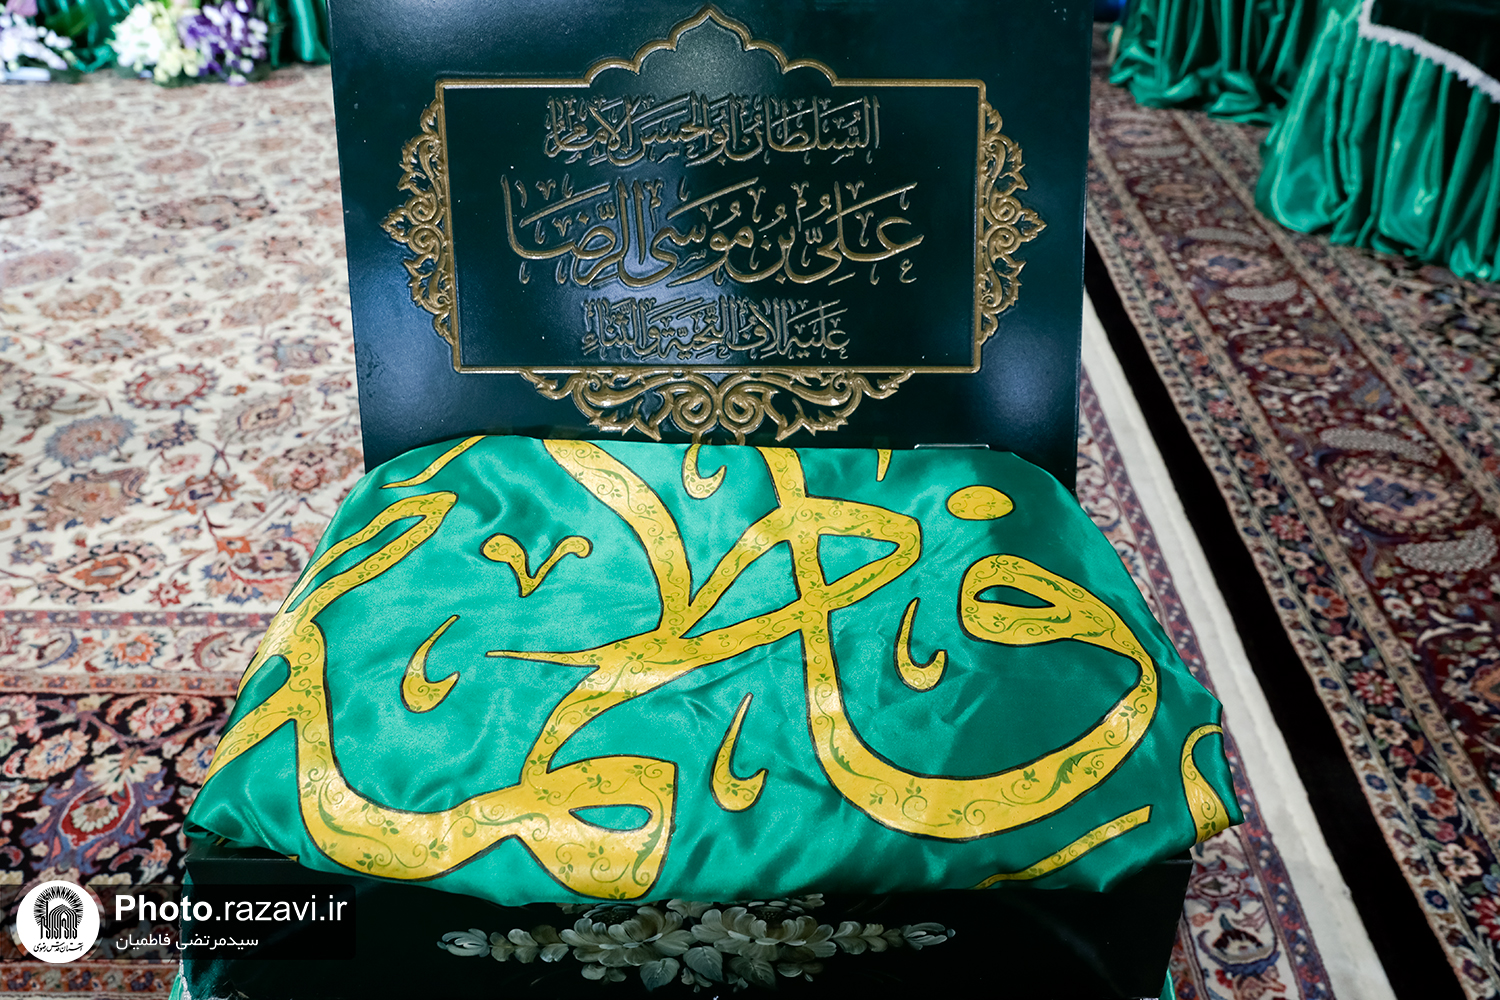 السُّلطان ابوالحسن الامام
عَلِیِّ بنِ مُوسَی الرِّضَا
عَلَیهِ الاف التَّحِیَّة وَالثَّناء
فاطمة
آستان قدس رضوی
Photo.razavi.ir
سیدمرتضی فاطمیان